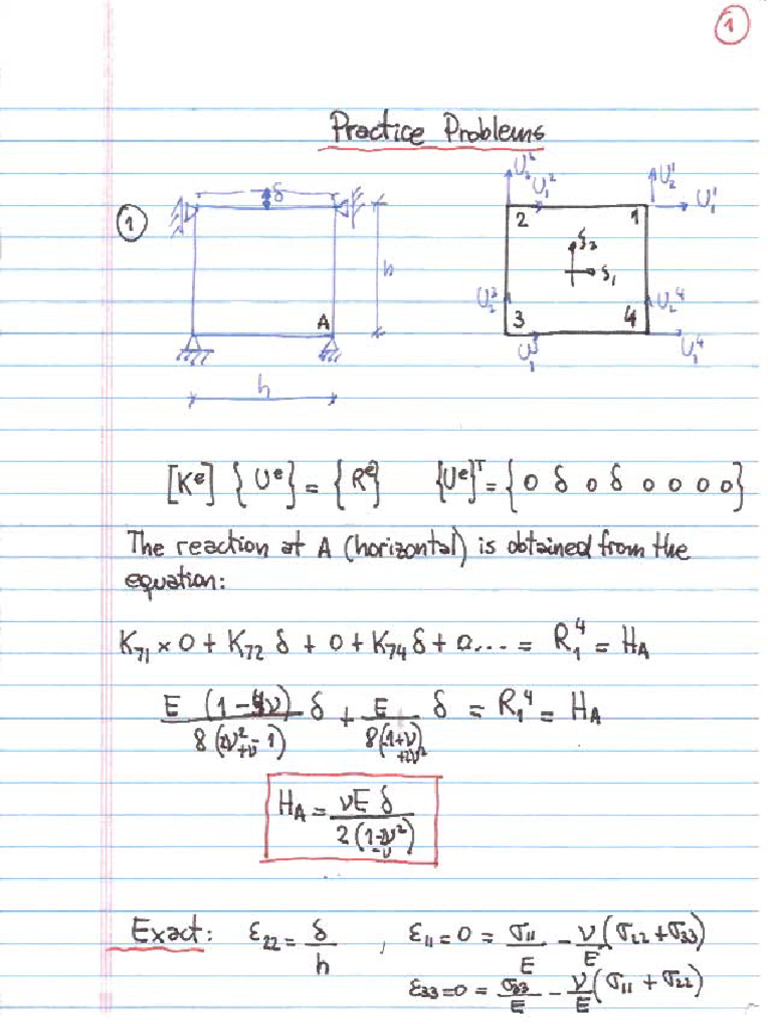 1
Practice Problems
1
δ
h
A
h
U₂² U₁² U₂¹ U₁¹
2 1
ξ₂
ξ₁
U₂³ U₂⁴
3 4
U₁³ U₁⁴
[Kᵉ] {Uᵉ} = {Rᵉ} {Uᵉ}ᵀ = {0 δ 0 δ 0 0 0 0}
The reaction at A (horizontal) is obtained from the
equation:
K₇₁ × 0 + K₇₂ δ + 0 + K₇₄ δ + 0... = R₁⁴ = H_A
E (1-4ν) / 8(2ν²+ν-1) δ + E / 8(-1+ν+2ν²) δ = R₁⁴ = H_A
H_A = νE δ / 2(1-2ν²-ν)
Exact: ε₂₂ = δ/h , ε₁₁ = 0 = σ₁₁/E - ν/E (σ₂₂ + σ₃₃)
ε₃₃ = 0 = σ₃₃/E - ν/E (σ₁₁ + σ₂₂)